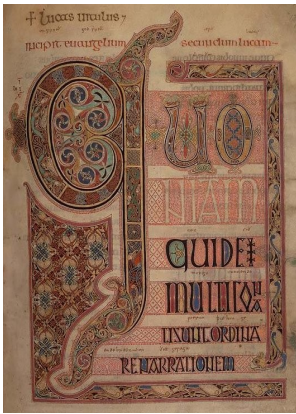 + lucas uitulus
incipit euangelium secundum lucam
QUO
NIAM
QUIDEM
MULTI CONA
TI SUNT ORDINA
RE NARRATIONEM